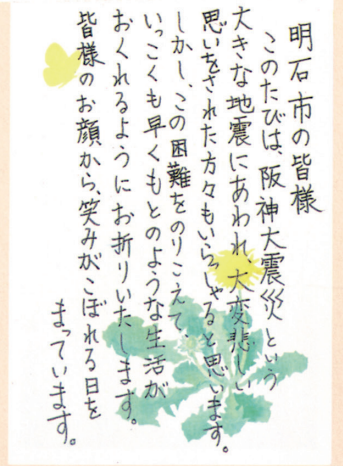 明石市の皆様
このたびは、阪神大震災という
大きな地震にあわれ、大変悲しい
思いをされた方々もいらっしゃると思います。
しかし、この困難をのりこえて、
いっこくも早くもとのような生活が
おくれるようにお折りいたします。
皆様のお顔から、笑みがこぼれる日を
まっています。